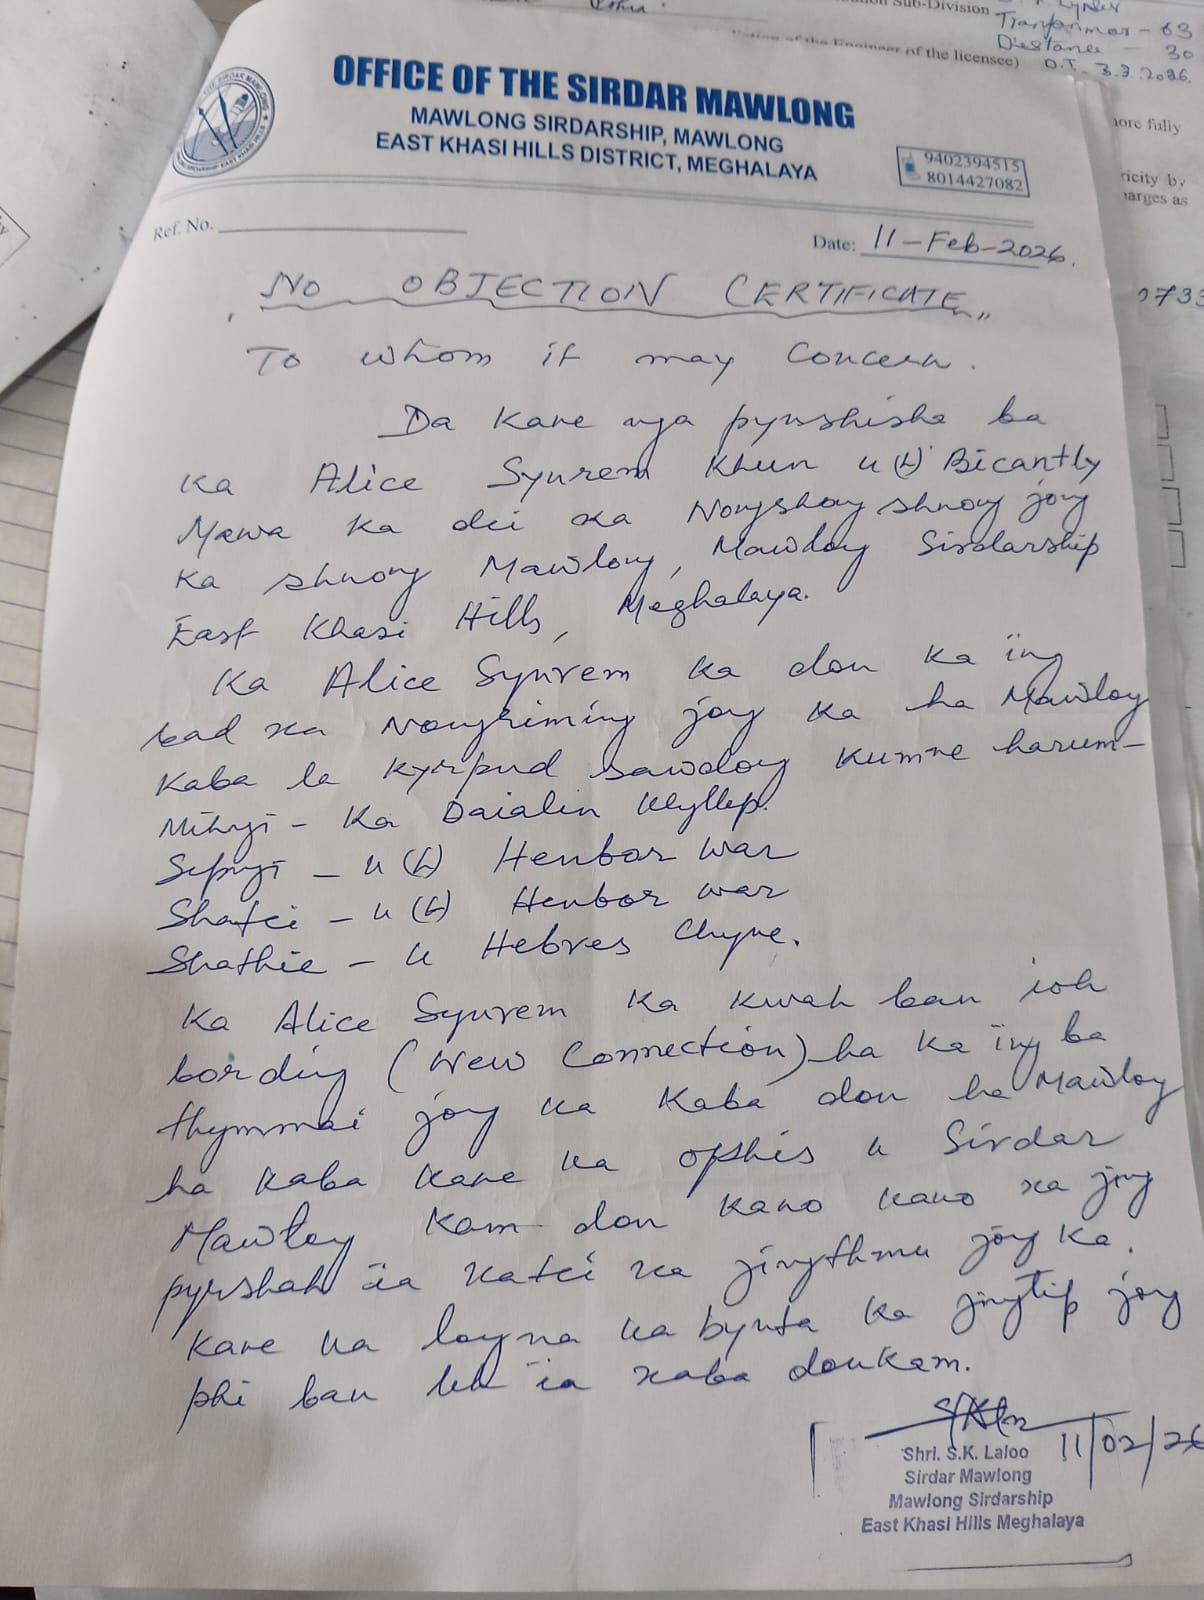 Sub-Division
Tranformer - 63
Distance - 30
of the Engineer of the licensee) D.T. 3.2.2026.
ore fully
ricity by
harges as
OFFICE OF THE SIRDAR MAWLONG
MAWLONG SIRDARSHIP, MAWLONG
EAST KHASI HILLS DISTRICT, MEGHALAYA
9402394515
8014427082
Ref. No.
Date: 11-Feb-2026.
"NO OBJECTION CERTIFICATE"
To whom it may Concern.
Da Kane nga pynshisha ba
Ka Alice Synrem Khun u (L) Bicantly
Mawa ka dei ka Nongshong shnong jong
Ka shnong Mawlong, Mawlong Sirdarship
East Khasi Hills, Meghalaya.
Ka Alice Synrem ka don ka ïing
bad ka Nongriming jong ka ha Mawlong
Kaba la kyrpad sawdong kumne harum-
Mihngi - Ka Daialin Klyllep.
Sepngi - u (L) Henbor War
Shatei - u (L) Henbor War
Shathie - u Hebres Chyne.
Ka Alice Synrem ka kwah ban ioh
bording (New Connection) ha ka ïing ba
thymmai jong ka kaba don ha Mawlong
ha kaba kane ka ophis u Sirdar
Mawlong kam don kano kano ka jing
pyrshah ïa katei ka jingthmu jong ka.
Kane ka long na ka bynta ka jingtip jong
phi ban leh ïa kaba donkam.
11/02/26
Shri. S.K. Laloo
Sirdar Mawlong
Mawlong Sirdarship
East Khasi Hills Meghalaya